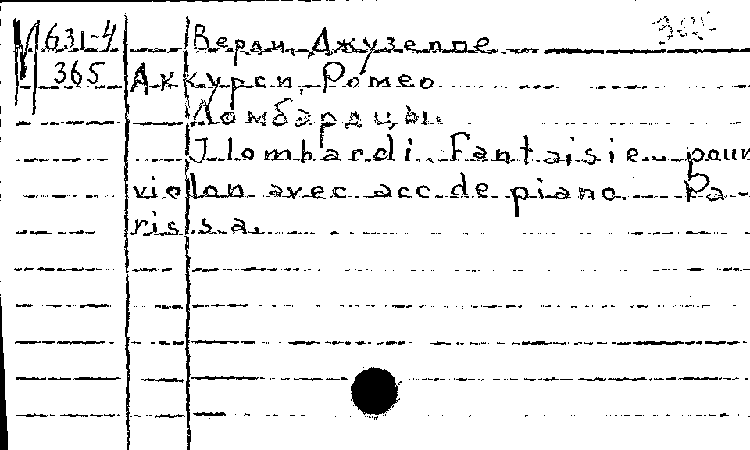 М 631-4 Верди, Джузеппе 365
365 Аккурси, Ромео
Ломбардцы.
I lombardi. Fantaisie pour
violon avec acc. de piano. Pa-
ris s.a.